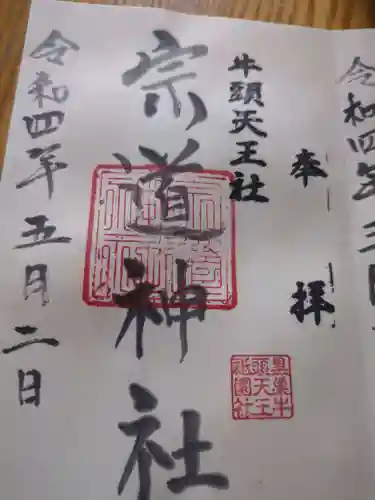 奉拝
牛頭天王社
宗道神社
令和四年五月二日
黒巣牛
頭天王
祇園社
令和四年三